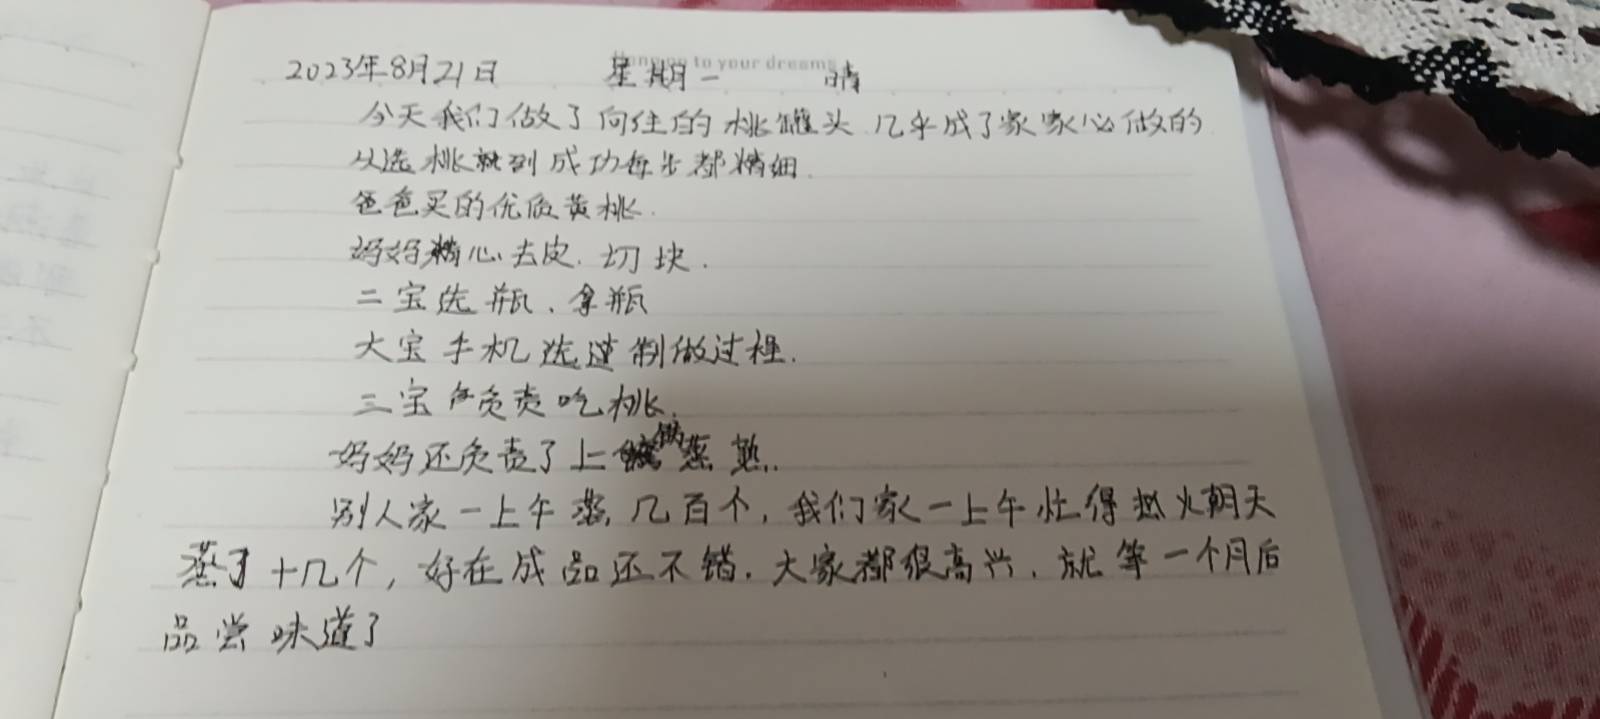 2023年8月21日 星期一 晴
to your dreams
今天我们做了向往的桃罐头 几乎成了家家必做的
从选桃就到成功每步都精细.
爸爸买的优质黄桃.
妈妈精心去皮. 切块.
二宝洗瓶、拿瓶
大宝手机选过制做过程.
三宝负责吃桃.
妈妈还负责了上锅蒸熟.
别人家一上午蒸几百个, 我们家一上午忙得热火朝天
蒸了十几个, 好在成品还不错. 大家都很高兴. 就等一个月后
品尝味道了